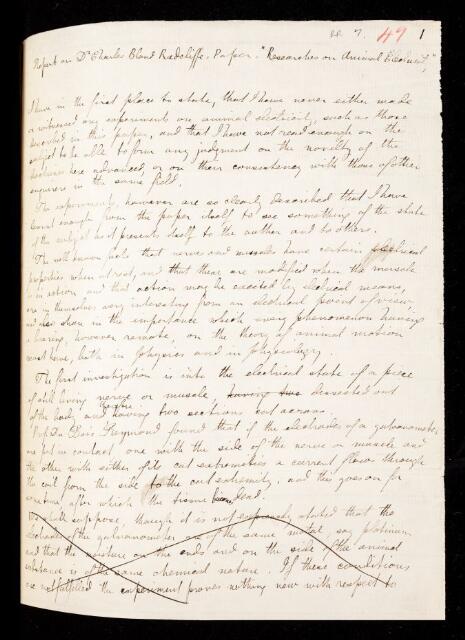 RR 7. 49 1
Report on Dr Charles Bland Radcliffe's Paper "Researches on Animal Electricity"
I have in the first place to state, that I have never either made
or witnessed any experiments on animal electricity, such as those
described in this paper, and that I have not read enough on the
subject to be able to form any judgment on the novelty of the
doctrines here advanced, or on their consistency with those of other
enquirers in the same field.
The experiments, however are so clearly described that I have
learnt enough from the paper itself to see something of the state
of the subject as it presents itself to the author and to others.
The well known facts that nerves and muscles have certain electrical
properties when at rest, and that these are modified when the muscle
is in action and that action may be excited by electrical means,
are in themselves very interesting from an electrical point of view,
and also share in the importance which every phenomenon having
a bearing, however remote, on the theory of animal motion
must have, both in Physics and in Physiology.
The first investigation is into the electrical state of a piece
of still living nerve or muscle, having two dissected out
of the body and having two sections cut across.
Prof. Du Bois Reymond found that if the electrodes of a galvanometer
are put in contact one with the side of the nerve or muscle and
the other with either of its cut extremities a current flows through
the coil from the side to the cut extremity, and this goes on for
some time after which the tissue is dead.
We shall suppose, though it is not expressly stated that the
electrodes of the galvanometer are of the same metal, say platinum
and that the moisture on the ends and on the side of the animal
substance is of the same chemical nature. If these conditions
are not fulfilled the experiment proves nothing new with respect to